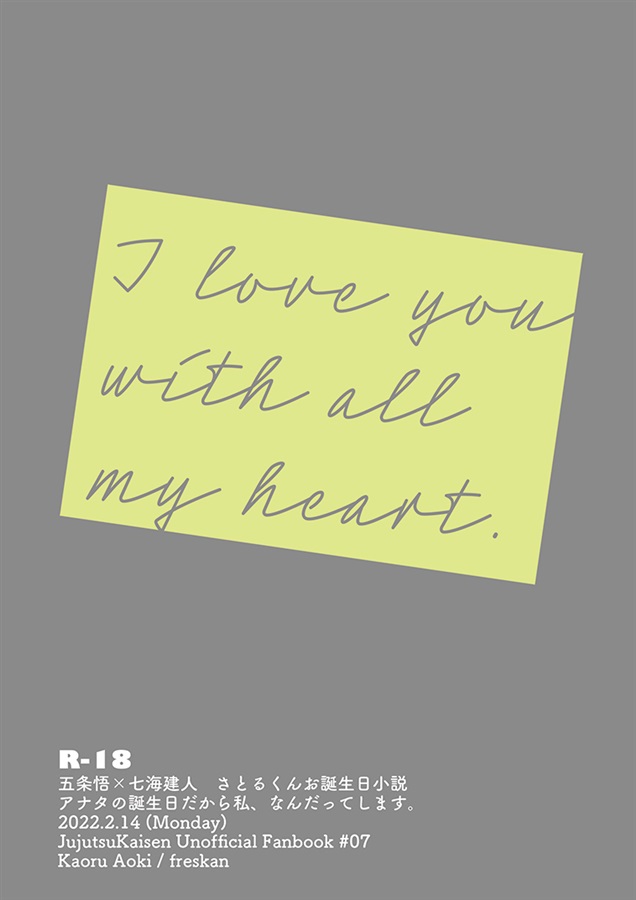 I love you
with all
my heart.
R-18
五条悟×七海建人　さとるくんお誕生日小説
アナタの誕生日だから私、なんだってします。
2022.2.14 (Monday)
JujutsuKaisen Unofficial Fanbook #07
Kaoru Aoki / freskan